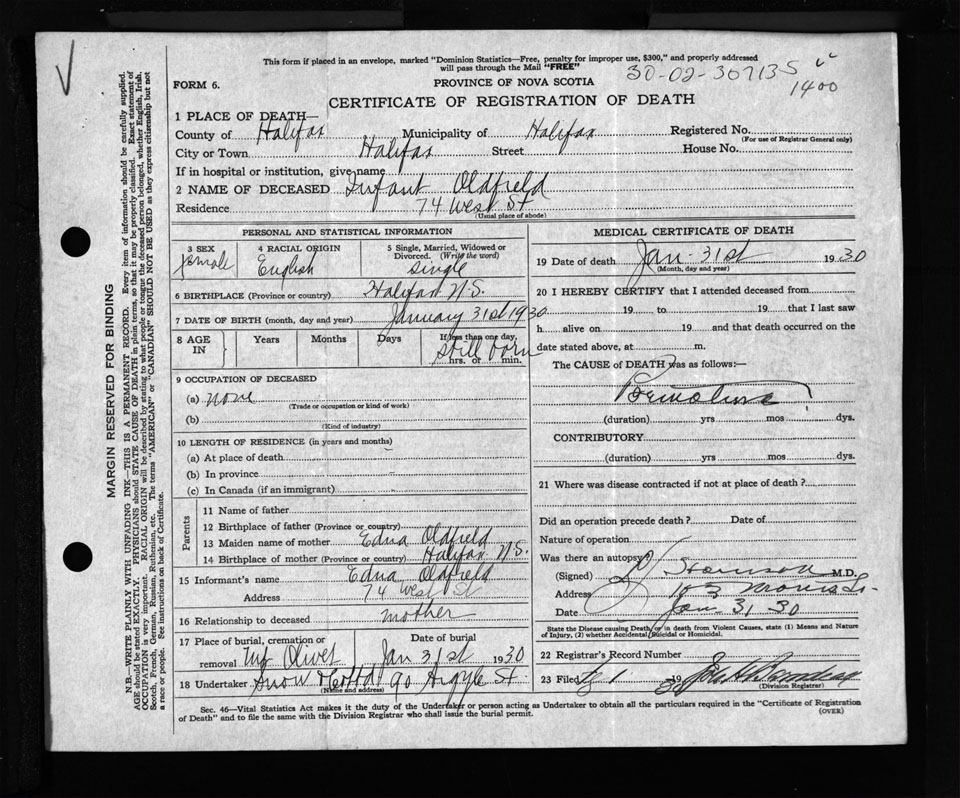 This form if placed in an envelope, marked "Dominion Statistics—Free, penalty for improper use, $300," and properly addressed
will pass through the Mail "FREE"
30-02-307135
1400
FORM 6.
PROVINCE OF NOVA SCOTIA
CERTIFICATE OF REGISTRATION OF DEATH
1 PLACE OF DEATH—
County of Halifax Municipality of Halifax Registered No.
(For use of Registrar General only)
City or Town Halifax Street House No.
If in hospital or institution, give name
2 NAME OF DECEASED Infant Oldfield
Residence 74 West St
(Usual place of abode)
PERSONAL AND STATISTICAL INFORMATION
3 SEX 4 RACIAL ORIGIN 5 Single, Married, Widowed or
Divorced. (Write the word)
female English single
6 BIRTHPLACE (Province or country) Halifax N.S.
7 DATE OF BIRTH (month, day and year) January 31st 1930
8 AGE IN Years Months Days If less than one day,
Still born
hrs. or min.
9 OCCUPATION OF DECEASED
(a) none
(Trade or occupation or kind of work)
(b)
(Kind of industry)
10 LENGTH OF RESIDENCE (in years and months)
(a) At place of death
(b) In province
(c) In Canada (if an immigrant)
Parents
11 Name of father
12 Birthplace of father (Province or country)
13 Maiden name of mother Edna Oldfield
14 Birthplace of mother (Province or country) Halifax N.S.
15 Informant's name Edna Oldfield
Address 74 West St
16 Relationship to deceased mother
17 Place of burial, cremation or Date of burial
removal Mt Olivet Jan 31st 1930
18 Undertaker Snow & Co Ltd 90 Argyle St
(Name and address)
MEDICAL CERTIFICATE OF DEATH
19 Date of death Jan 31st 1930
(Month, day and year)
20 I HEREBY CERTIFY that I attended deceased from
19 to 19 that I last saw
h alive on 19 and that death occurred on the
date stated above, at m.
The CAUSE OF DEATH was as follows:—
Premature
(duration) yrs mos dys.
CONTRIBUTORY
(duration) yrs mos dys.
21 Where was disease contracted if not at place of death?
Did an operation precede death? Date of
Nature of operation
Was there an autopsy
(Signed) M.D.
Address Morris St.
Date Jan 31 30
State the Disease causing Death, or in death from Violent Causes, state (1) Means and Nature
of Injury, (2) whether Accidental, Suicidal or Homicidal.
22 Registrar's Record Number
23 Filed 1 19
(Division Registrar)
Sec. 46—Vital Statistics Act makes it the duty of the Undertaker or person acting as Undertaker to obtain all the particulars required in the "Certificate of Registration
of Death" and to file the same with the Division Registrar who shall issue the burial permit.
(OVER)
MARGIN RESERVED FOR BINDING
N.B.—WRITE PLAINLY WITH UNFADING INK—THIS IS A PERMANENT RECORD. Every item of information should be carefully supplied.
AGE should be stated EXACTLY. PHYSICIANS should STATE CAUSE OF DEATH in plain terms, so that it may be properly classified. Exact statement of
OCCUPATION is very important. RACIAL ORIGIN will be described by stating to what people or tongue the deceased person belonged, whether English, Irish,
Scotch, French, German, Russian, Ruthenian, etc. The terms "AMERICAN" or "CANADIAN" SHOULD NOT BE USED as they express citizenship but not
a race or people. See instructions on back of Certificate.